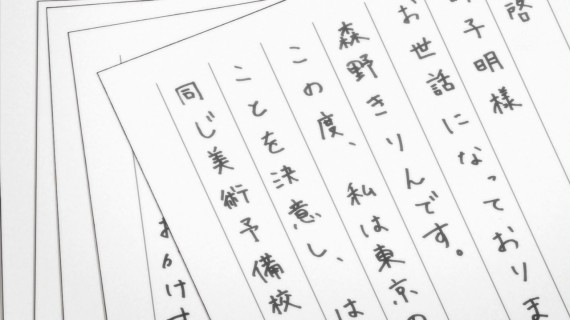 啓
子明様
お世話になっておりま
森野きりんです。
この度、私は東京の
ことを決意し、は
同じ美術予備校
おかけす